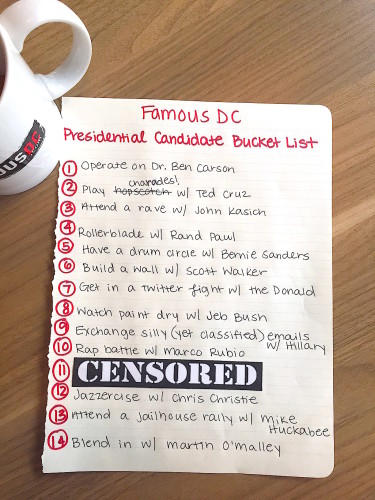 OUS DC
Famous DC
Presidential Candidate Bucket List
1 Operate on Dr. Ben Carson
charades!
2 Play hopscotch w/ Ted Cruz
3 Attend a rave w/ John Kasich
4 Rollerblade w/ Rand Paul
5 Have a drum circle w/ Bernie Sanders
6 Build a wall w/ Scott Walker
7 Get in a twitter fight w/ the Donald
8 Watch paint dry w/ Jeb Bush
9 Exchange silly (yet classified) emails
w/ Hillary
10 Rap battle w/ Marco Rubio
11 CENSORED
12 Jazzercise w/ Chris Christie
13 Attend a jailhouse rally w/ Mike
Huckabee
14 Blend in w/ Martin O'Malley